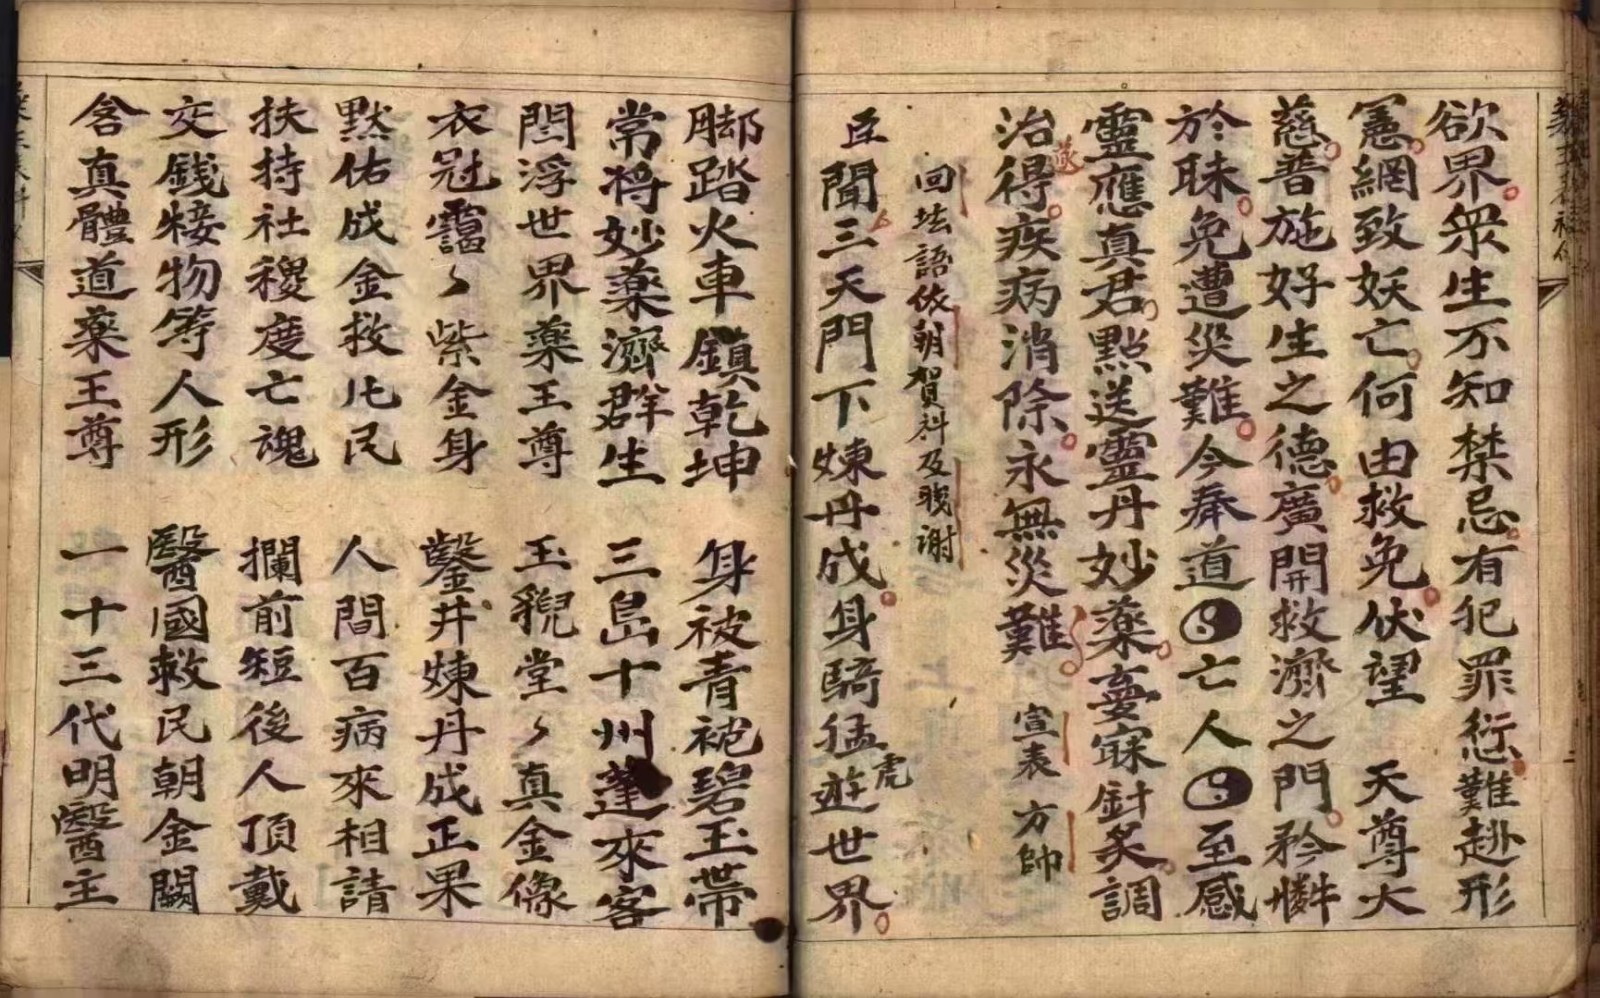 欲界眾生不知禁忌有犯罪衍難赴形
憲網致妖亡何由救免伏望 天尊大
慈普施好生之德廣開救濟之門矜憐
於昧免遭災難今奉道亡人至感
靈應真君點送靈丹妙藥妄寐針炙調
治得遂疾病消除永無災難 宣表 方帥
回坛語依朝賀科及戩謝
臣聞三天門下煉丹成身騎猛虎遊世界
脚踏火車鎮乾坤 身被青袍碧玉帶
常將妙藥濟群生 三島十州蓬來客
閻浮世界藥王尊 玉猊堂〻真金像
衣冠靄〻紫金身 鑿井煉丹成正果
黙佑成金救庀民 人間百病來相請
扶持社稷度亡魂 攔前短後人頂戴
交錢犊物等人形 醫國救民朝金闕
含真體道藥王尊 一十三代明醫主